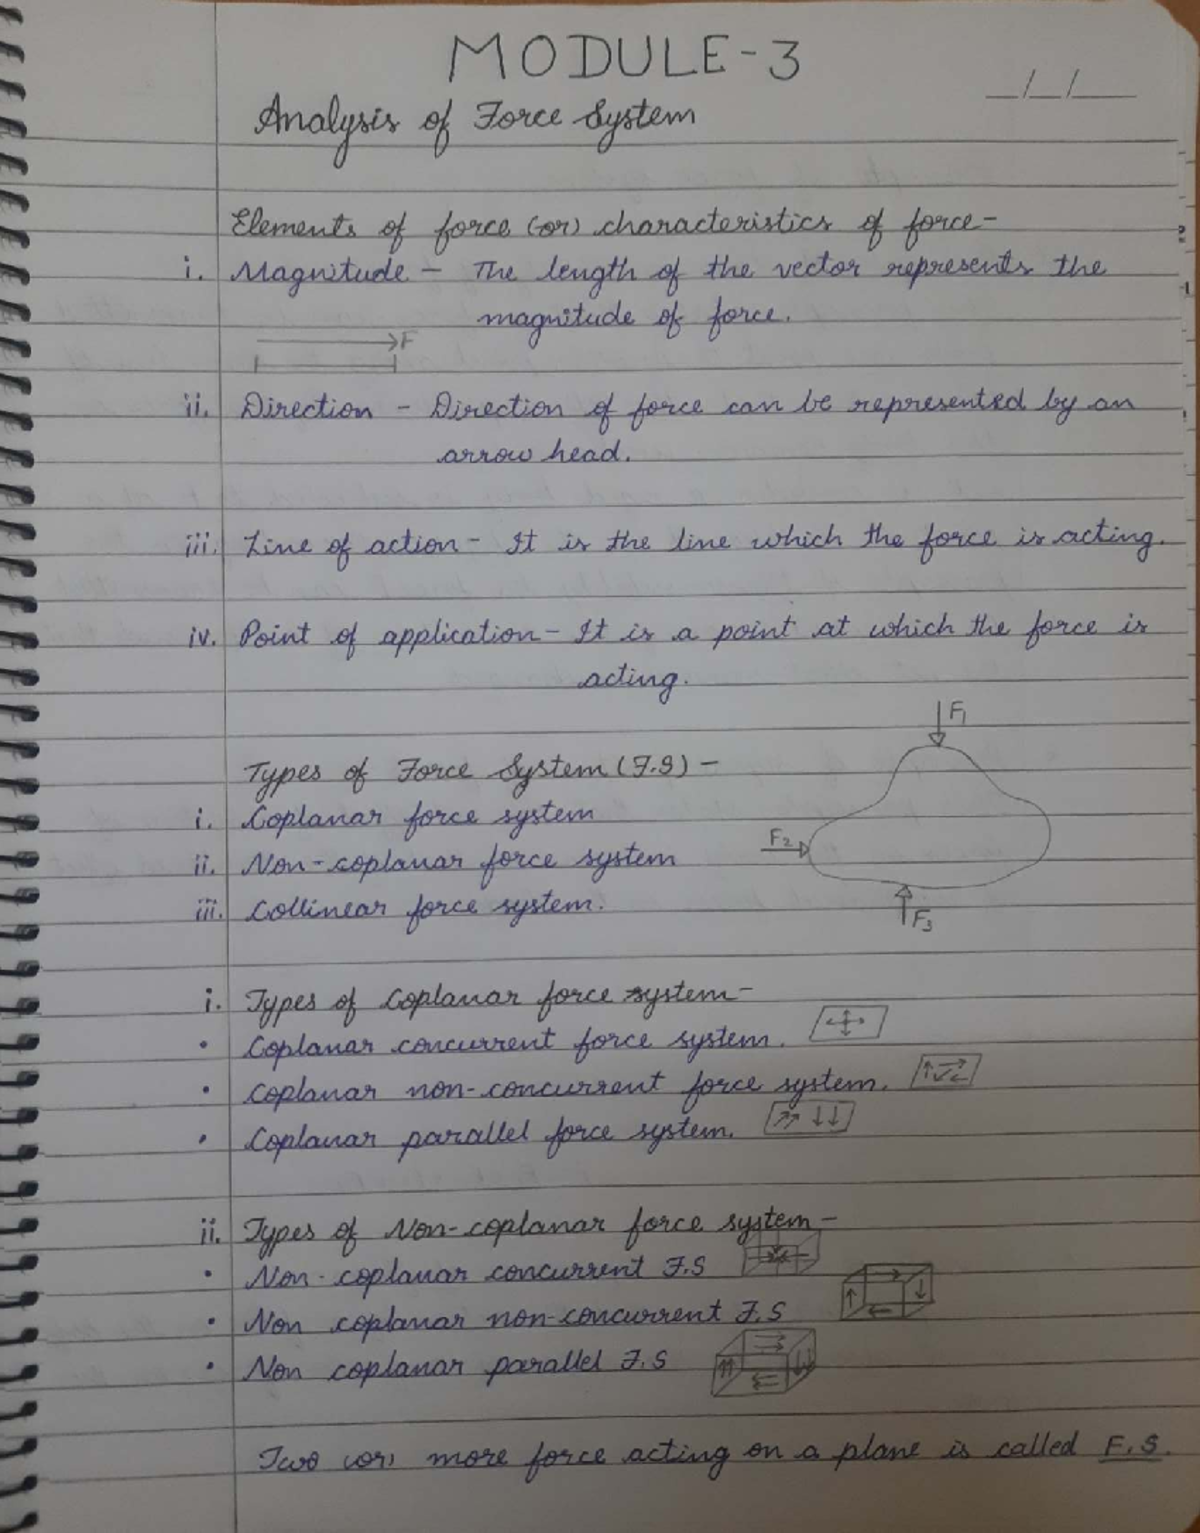 MODULE-3
__/__/____
Analysis of Force System
Elements of force (or) characteristics of force-
i. Magnitude - The length of the vector represents the
magnitude of force.
F
ii. Direction - Direction of force can be represented by an
arrow head.
iii. Line of action - It is the line which the force is acting.
iv. Point of application - It is a point at which the force is
acting.
F1
Types of Force System (F.S) -
i. Coplanar force system
F2
ii. Non-coplanar force system
iii. Collinear force system.
F3
i. Types of Coplanar force system-
• Coplanar concurrent force system.
• Coplanar non-concurrent force system.
• Coplanar parallel force system.
ii. Types of Non-coplanar force system-
• Non-coplanar concurrent F.S
• Non coplanar non-concurrent F.S
• Non coplanar parallel F.S
Two (or) more force acting on a plane is called F.S.